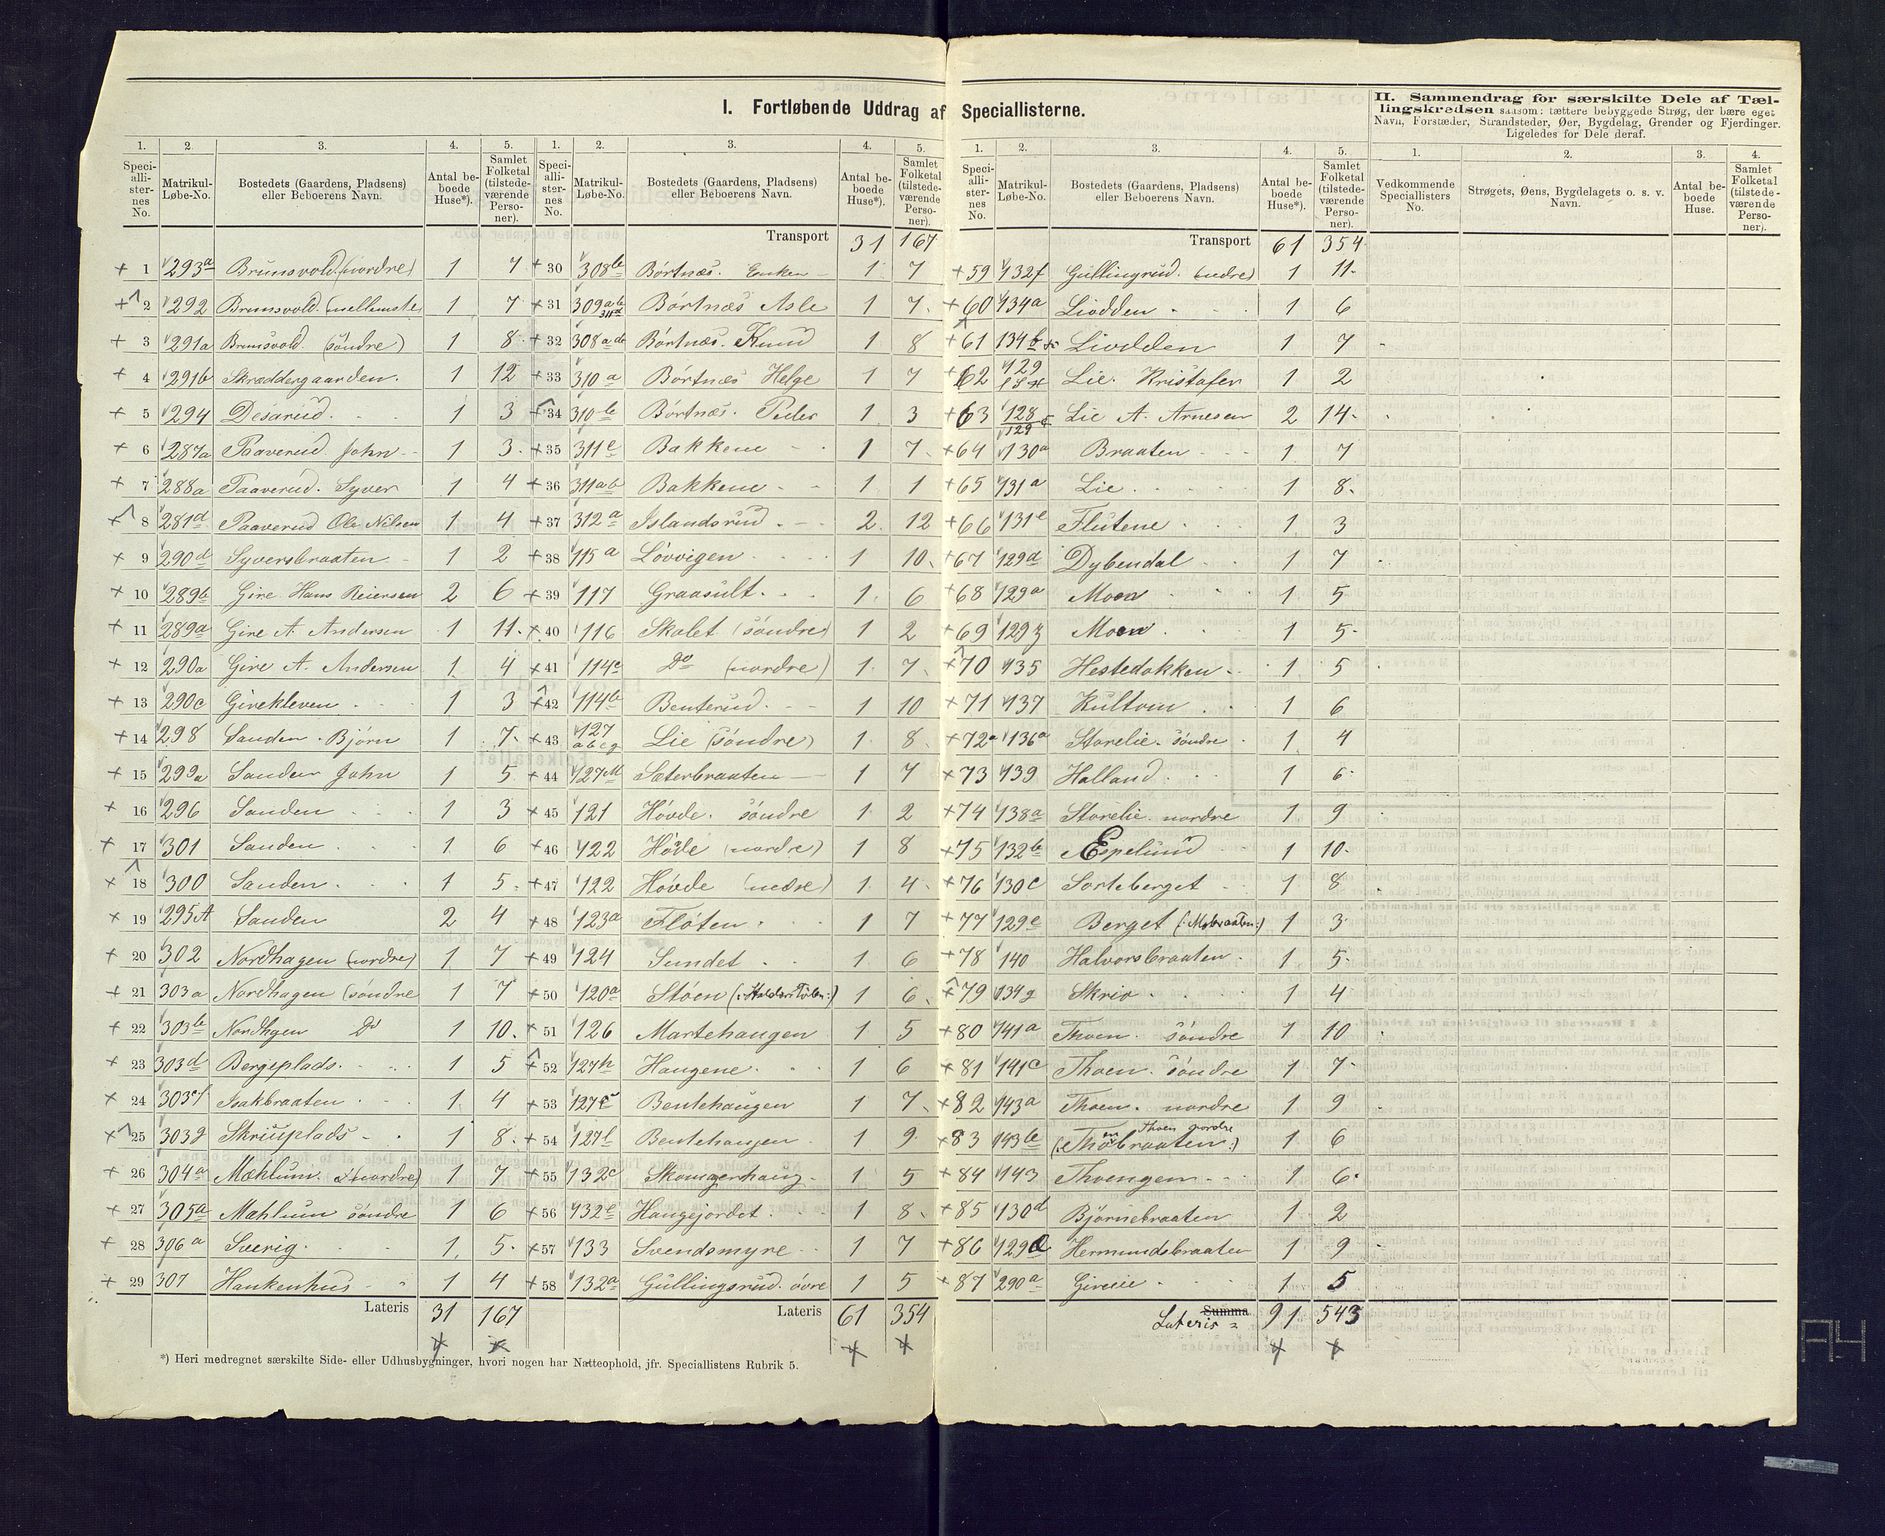 I. Fortløbende Uddrag af Speciallisterne.
II. Sammendrag for særskilte Dele af Tællingskredsen saasom: tættere bebyggede Strøg, der bære eget Navn, Forstæder, Strandsteder, Øer, Bygdelag, Grender og Fjerdinger. Ligeledes for Dele deraf.
1. 2. 3. 4. 5.
Speciallisternes No. Matrikul-Løbe-No. Bostedets (Gaardens, Pladsens) eller Beboerens Navn. Antal beboede Huse*). Samlet Folketal (tilstedeværende Personer).
+ 1 293a Brunsvold (nordre) 1 7
+ 2 292 Brunsvold (mellemste 1 7
+ 3 291a Brunsvold (søndre) 1 8
+ 4 291b Skræddergaarden. 1 12
+ 5 294 Desarud 1 3
+ 6 287a Paaverud John 1 3
+ 7 288a Paaverud Syver 1 4
+ 8 281d Paaverud Ole Nilsen 1 4
+ 9 290d Syversbraaten 1 2
+ 10 289b Gire Hans Reiersen 2 6
+ 11 289a Gire A. Andersen 1 11
+ 12 290a Gire A. Andersen 1 4
+ 13 290c Girekleven 1 3
+ 14 298 Sanden Bjørn 1 7
+ 15 299a Sanden John 1 5
+ 16 296 Sanden 1 3
+ 17 301 Sanden 1 6
+ 18 300 Sanden 1 5
+ 19 295A Sanden 2 4
+ 20 302 Nordhagen (nordre) 1 7
+ 21 303a Nordhagen (søndre 1 7
+ 22 303b Nordhgen Do 1 10
+ 23 303d Bergeplads 1 5
+ 24 303f Isakbraaten 1 4
+ 25 303g Skriuplads 1 8
+ 26 304a Mæhlum (nordre) 1 7
+ 27 305a Mæhlum søndre 1 6
+ 28 306a Sverig 1 5
+ 29 307 Hankenhus 1 4
Lateris 31 167
1. 2. 3. 4. 5.
Speciallisternes No. Matrikul-Løbe-No. Bostedets (Gaardens, Pladsens) eller Beboerens Navn. Antal beboede Huse*). Samlet Folketal (tilstedeværende Personer).
Transport 31 167
+ 30 308b Børtnæs. Enken 1 7
+ 31 309ab 311d Børtnæs Asle 1 7
+ 32 308a Børtnæs. Knud 1 8
+ 33 310a Børtnæs Helge 1 7
34 310b Børtnæs. Peder 1 3
+ 35 311e Bakkene 1 7
+ 36 311ab Bakkene 1 1
+ 37 312a Islandsrud 2 12
+ 38 115a Løvvigen 1 10
+ 39 117 Graasult 1 6
+ 40 116 Skolet (søndre) 1 2
+ 41 114c Do (nordre) 1 7
+ 42 114b Benterud 1 10
+ 43 127 abcg Lie (søndre) 1 8
+ 44 127M Sæterbraaten 1 7
+ 45 121 Høvde. søndre 1 2
+ 46 122 Høvde (nordre) 1 8
+ 47 122 Høvde (nedre) 1 4
+ 48 123a Fløten 1 7
+ 49 124 Sundet 1 6
+ 50 120a Støen 1 6
+ 51 126 Martehaugen 1 5
+ 52 127h Haugene 1 6
+ 53 127c Bentehaugen 1 7
+ 54 127l Bentehaugen 1 9
+ 55 132c Skomagerhaug 1 5
+ 56 132e Haugejordet 1 8
+ 57 133 Svendsmyre 1 7
+ 58 132a Gullingsrud. øvre 1 5
Lateris 61 354
1. 2. 3. 4. 5.
Speciallisternes No. Matrikul-Løbe-No. Bostedets (Gaardens, Pladsens) eller Beboerens Navn. Antal beboede Huse*). Samlet Folketal (tilstedeværende Personer).
Transport 61 354
+ 59 132f Gullingrud. (nedre) 1 11
+ 60 134a Liodden 1 6
+ 61 134b Liodden 1 7
+ 62 129 Lie. Kristofer 1 2
+ 63 128 129 Lie A. Arnesen 2 14
+ 64 130a Braaten 1 7
+ 65 131a Lie 1 8
+ 66 131e Flutene 1 3
+ 67 129d Dybendal 1 7
+ 68 129a Moen 1 5
+ 69 129z Moen 1 5
+ 70 135 Hestedokken 1 5
+ 71 137 Kultom 1 6
+ 72a 136a Storelie. søndre 1 4
+ 73 139 Halland 1 6
+ 74 138a Storelie nordre 1 9
+ 75 132b Espelund 1 10
+ 76 130c Sorteberget 1 8
+ 77 129e Berget (:Mobraaten:) 1 3
+ 78 140 Halvorsbraaten 1 5
+ 79 134g Skrio 1 4
+ 80 141a Thoen. søndre 1 10
+ 81 141c Thoen. søndre 1 7
+ 82 143a Thoen. nordre 1 9
+ 83 143b Thoen nordre (:Thoenbraaten:) 1 6
+ 84 143 Thoengem 1 6
+ 85 130d Bjørnebraaten 1 2
+ 86 129 Hermundsbraaten 1 9
+ 87 290a Gireeie 1 5
Summa Lateris 91 543
1. 2. 3. 4.
Vedkommende Speciallisters No. Strøgets, Øens, Bygdelagets o. s. v. Navn. Antal beboede Huse. Samlet Folketal (tilstedeværende Personer).
*) Heri medregnet særskilte Side- eller Udhusbygninger, hvori nogen har Natteophold, jfr. Speciallistens Rubrik 5.
A4